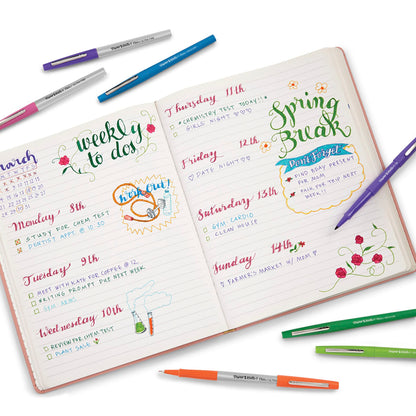 Paper Mate
Paper Mate
Paper Mate
weekly
to dos
march
Monday 8th
STUDY FOR CHEM TEST
DENTIST APPT. @ 10:30
work out!
Tuesday 9th
MEET WITH KATE FOR COFFEE @ 12
WRITING PROMPT DUE NEXT WEEK
Wednesday 10th
REVIEW FOR CHEM TEST
PLANT SALE
Thursday 11th
CHEMISTRY TEST TODAY!!
GIRLS NIGHT
Friday 12th
DATE NIGHT
Saturday 13th
GYM, CARDIO
CLEAN HOUSE
Sunday 14th
FARMER'S MARKET W/ MOM
Spring
Break
Don't Forget
FIND BDAY PRESENT
FOR MOM
PACK FOR TRIP NEXT
WEEK!
Paper Mate
Paper Mate
Paper Mate